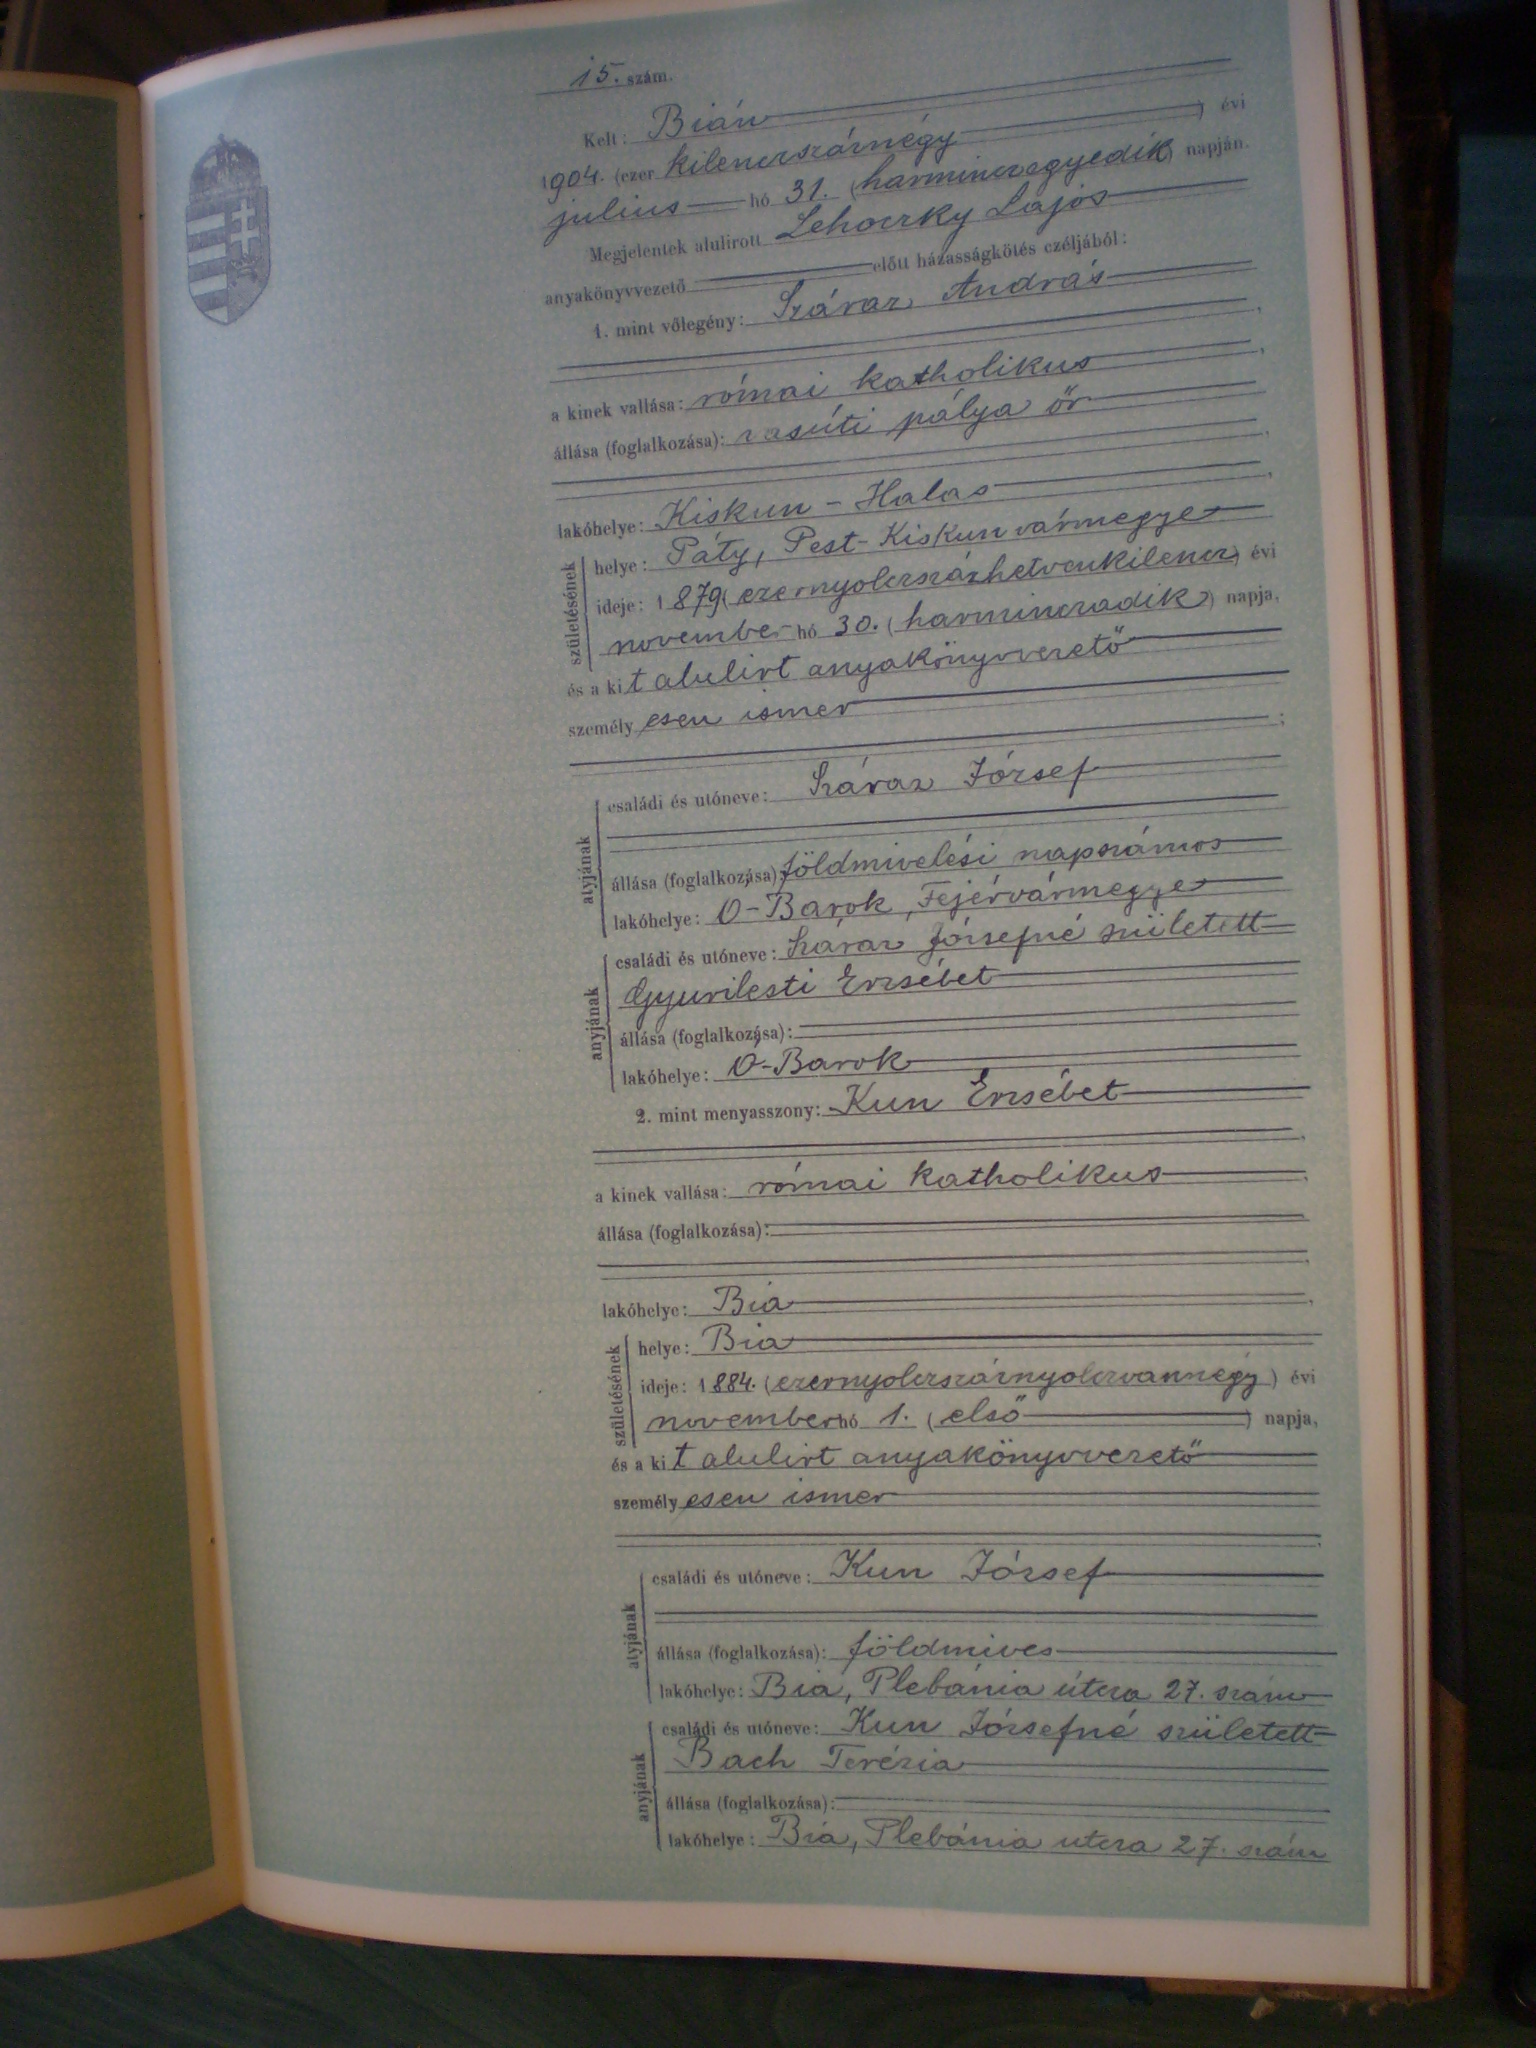 15. szám.
Kelt: Bián
1904. (ezer kilenczszáznégy ) évi
julius hó 31. (harminczegyedik) napján.
Megjelentek alulirott Lehoczky Lajos
anyakönyvvezető előtt házasságkötés czéljából:
1. mint vőlegény: Száraz András
a kinek vallása: római katholikus
állása (foglalkozása): vasúti pálya őr
lakóhelye: Kiskun-Halas
születésének
helye: Páty, Pest-Kiskun vármegye
ideje: 1879 (ezernyolczszázhetvenkilencz) évi
november hó 30. (harminczadik) napja,
és a kit alulirt anyakönyvvezető
személyesen ismer
atyjának
családi és utóneve: Száraz József
állása (foglalkozása): földmivelési napszámos
lakóhelye: Ó-Barok, Fejérvármegye
anyjának
családi és utóneve: Száraz Józsefné született
Erzsébet
állása (foglalkozása):
lakóhelye: Ó-Barok
2. mint menyasszony: Kun Erzsébet
a kinek vallása: római katholikus
állása (foglalkozása):
lakóhelye: Bia
születésének
helye: Bia
ideje: 1884. (ezernyolczszáznyolczvannégy) évi
november hó 1. (első ) napja,
és a kit alulirt anyakönyvvezető
személyesen ismer
atyjának
családi és utóneve: Kun József
állása (foglalkozása): földmives
lakóhelye: Bia, Plebánia útcza 27. szám
anyjának
családi és utóneve: Kun Józsefné született
Bach Terézia
állása (foglalkozása):
lakóhelye: Bia, Plebánia utcza 27. szám